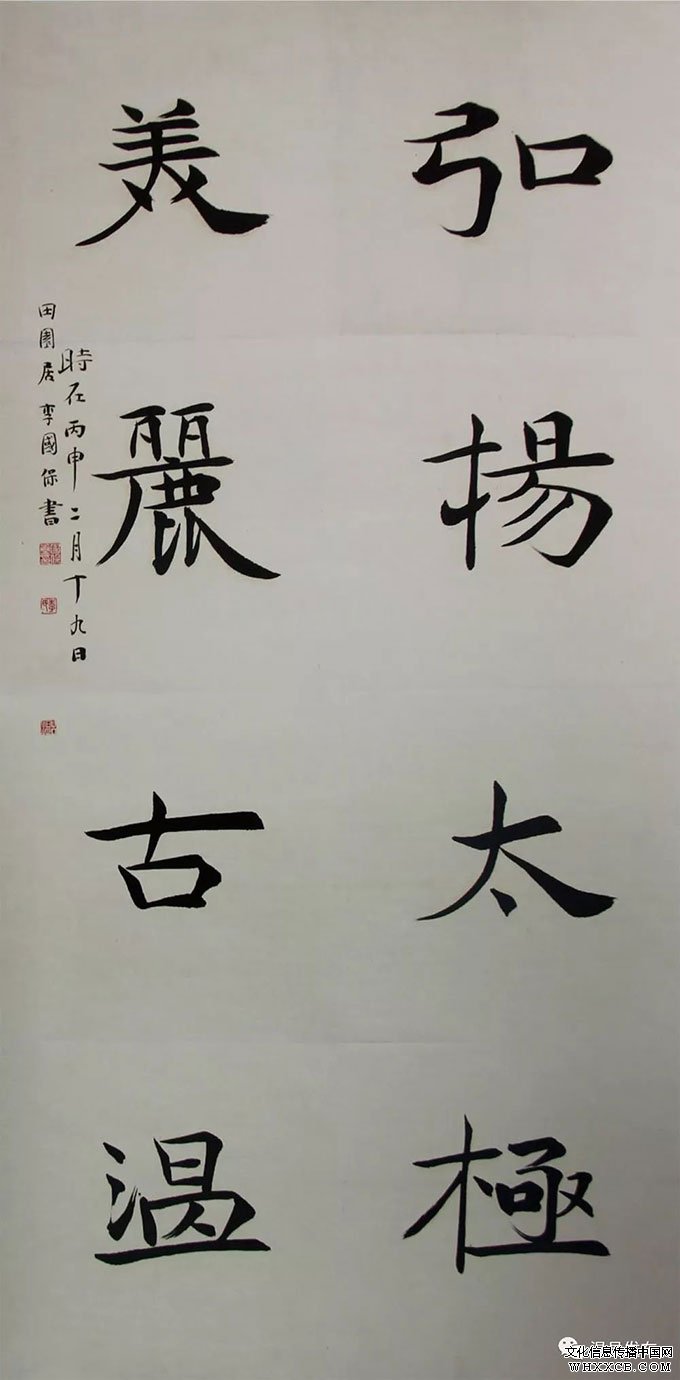 弘揚太極
美麗古温
時在丙申二月十九日
田園居李國保書
温县发布
文化信息传播中国网
WHXXCB.COM